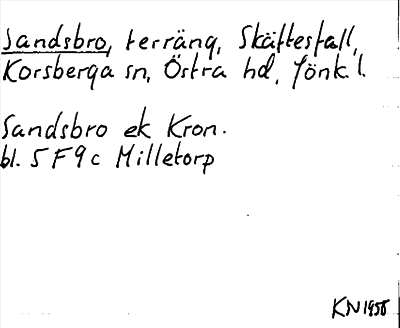 Sandsbro, terräng, Skäftesfall,
Korsberga sn, Östra hd, Jönk. l.
Sandsbro ek Kron.
bl. 5 F 9 c Milletorp
KN 1958